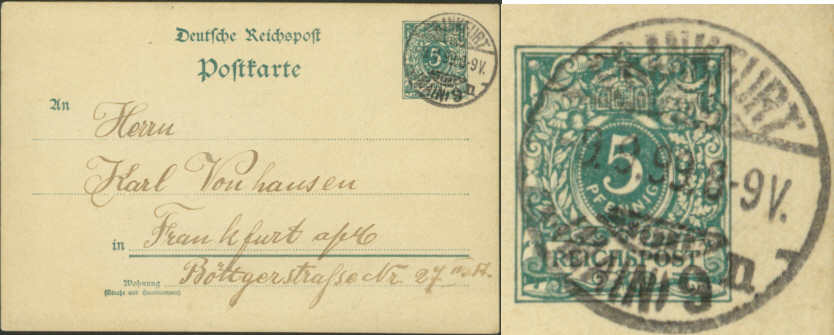 Deutsche Reichspost
Postkarte
An
Herrn
Karl Vonhausen
in Frankfurt a/M
Wohnung
(Straße und Hausnummer)
Böttgerstraße Nr. 27
5
PFENNIG
REICHSPOST
FRANKFURT
99.8-9V.